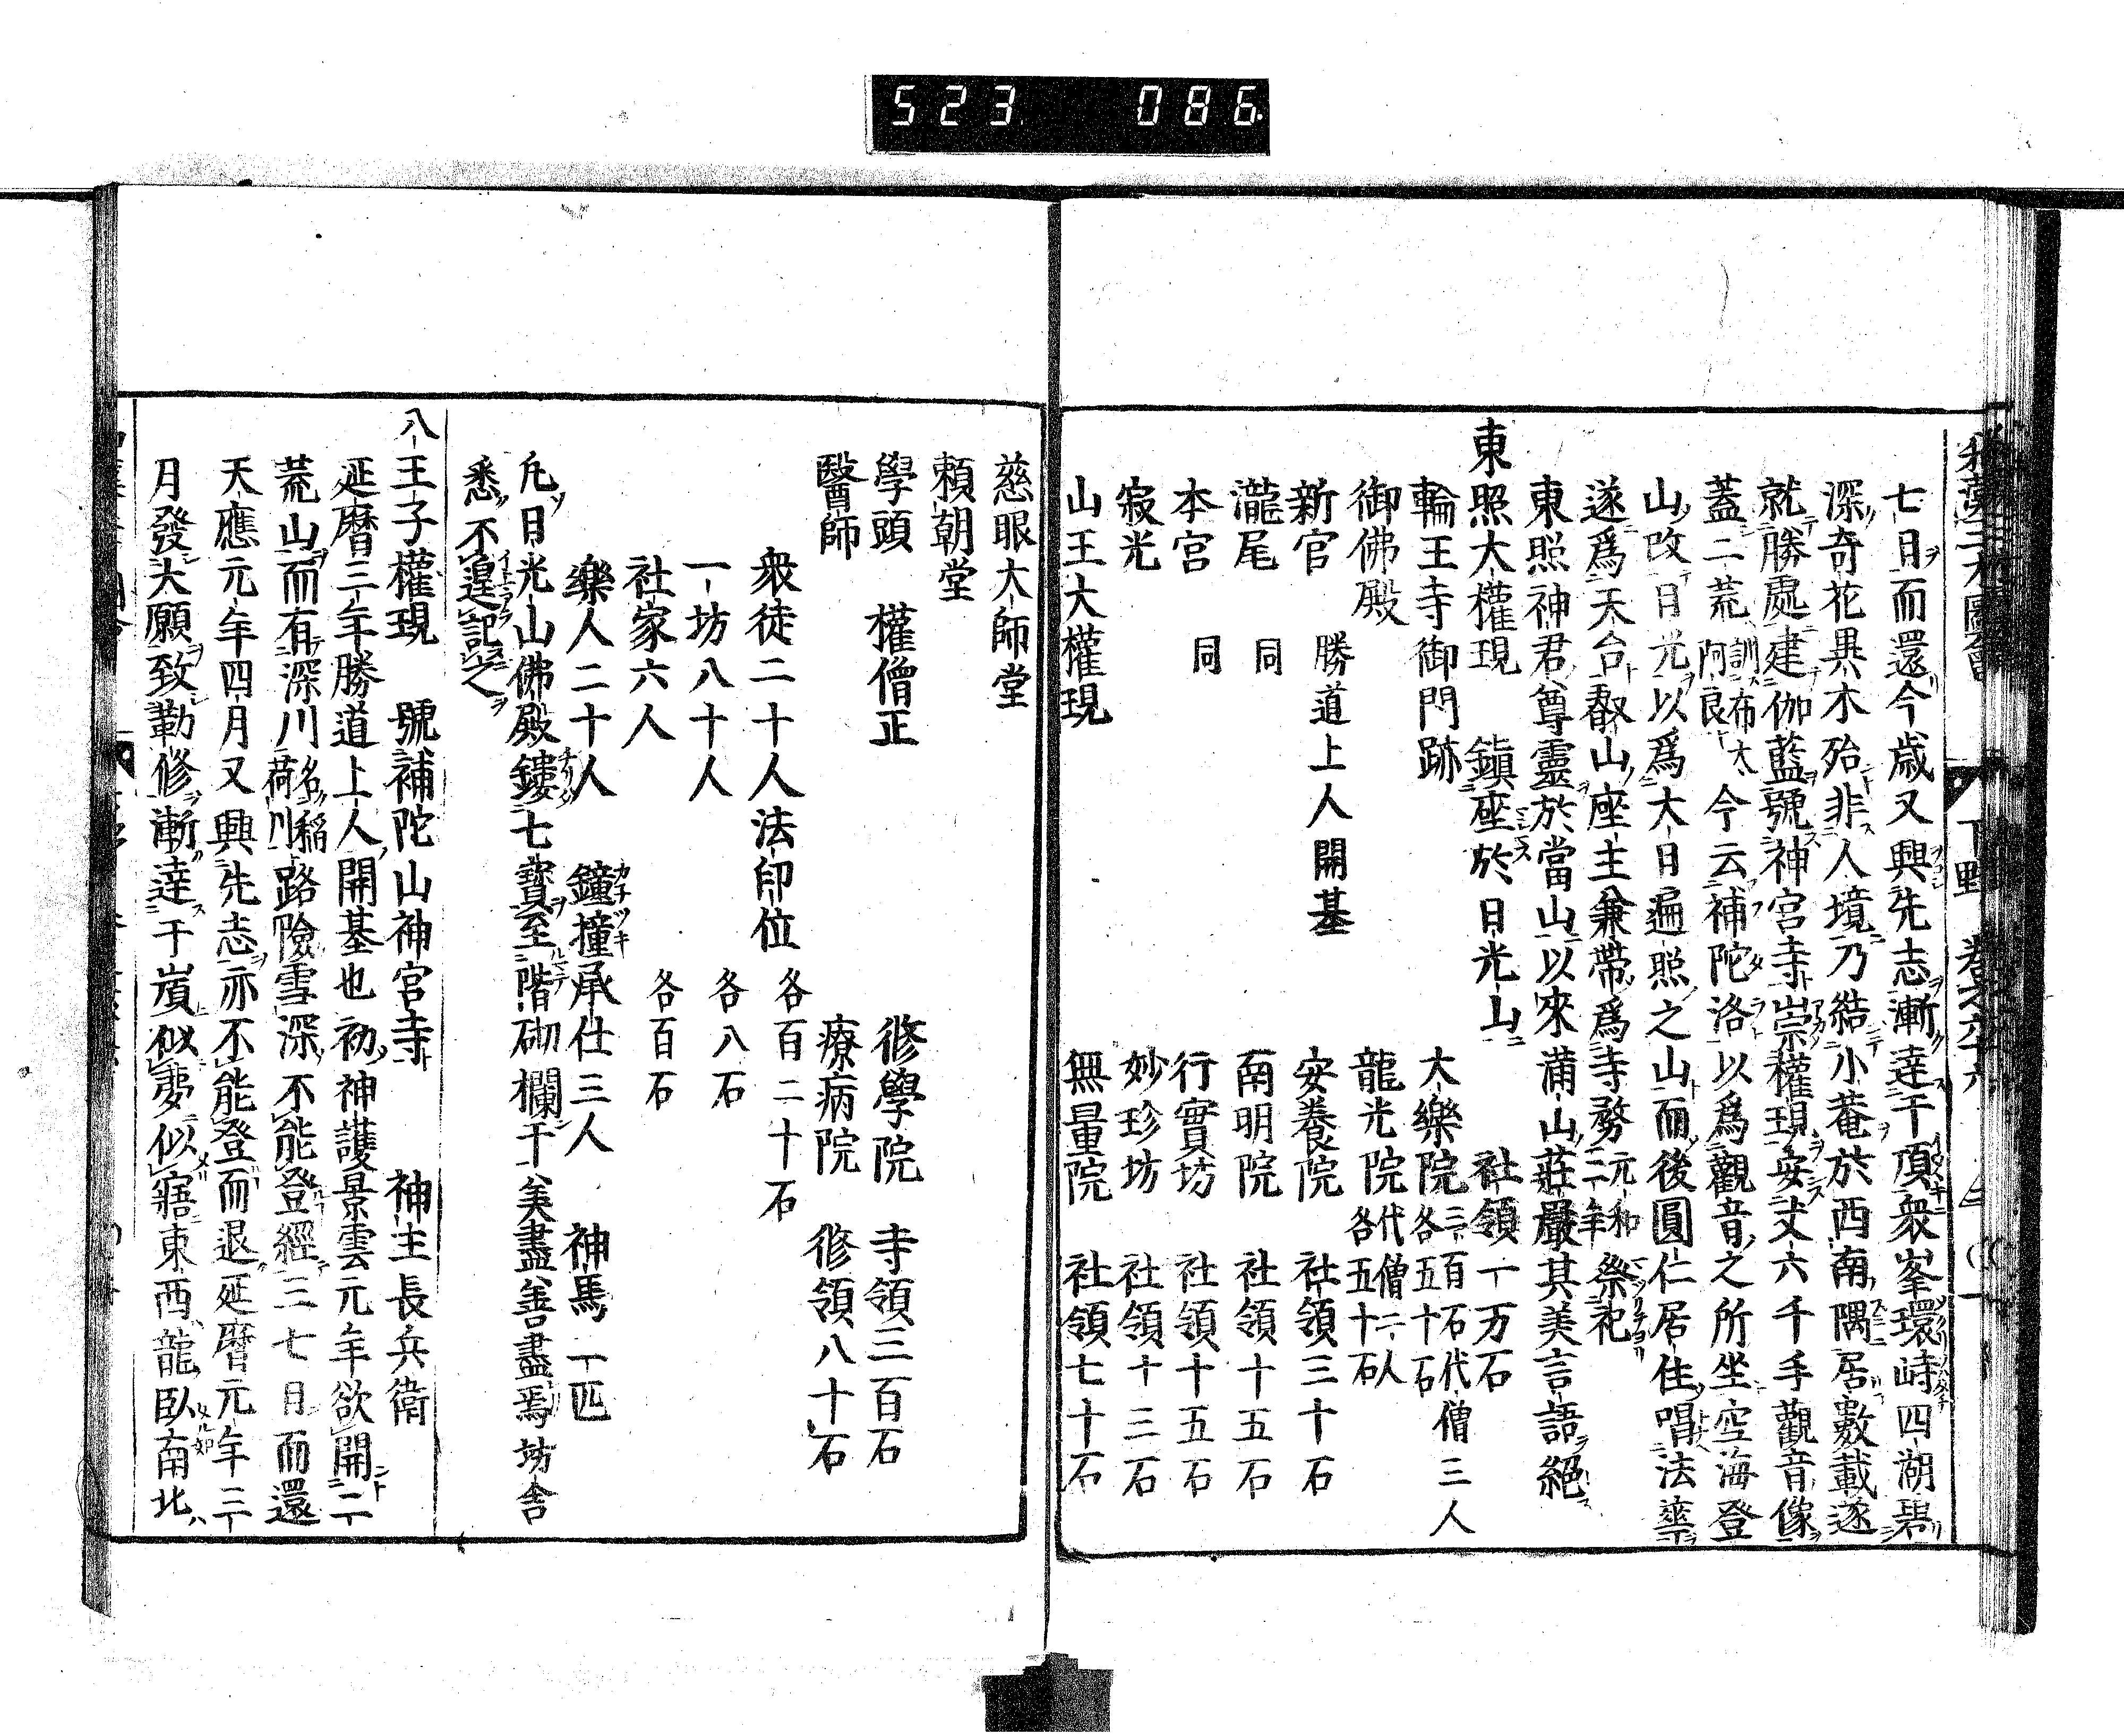 523 086
七日而還今歳又興先志漸達于頂衆峯環峙四湖碧
深奇花異木殆非人境乃結小菴於西南隅居數載遂
就勝處建伽藍號神宮寺崇權現安丈六千手觀音像
蓋二荒訓布太阿良今云補陀洛以爲觀音之所坐空海登
山改日光以爲大日遍照之山而後圓仁居住唱法華
遂爲天台叡山座主兼帶爲寺務元和二年祭祀
東照神君尊靈於當山以來滿山莊嚴其美言語絕
東照大權現 鎮座於日光山 社領一万石
輪王寺御門跡 大樂院三百石代僧三人各五十石
御佛殿 龍光院代僧二人各五十石
新宮 勝道上人開基 安養院 社領三十石
瀧尾 同 南明院 社領十五石
本宮 同 行實坊 社領十五石
寂光 妙珍坊 社領十三石
山王大權現 無量院 社領七十石
慈眼大師堂
頼朝堂
學頭 權僧正 修學院 寺領三百石
醫師 療病院 修領八十石
衆徒二十人法印位 各百二十石
一坊八十人 各八石
社家六人 各百石
樂人二十人 鐘撞承仕三人 神馬一匹
凡日光山佛殿鏤七寶至階砌欄干美盡善盡焉坊舎
悉不遑記之
八王子權現 號補陀山神宮寺 神主長兵衛
延暦三年勝道上人開基也初神護景雲元年欲開二
荒山而有深川名稻荷川路險雪深不能登經三七日而還
天應元年四月又興先志亦不能登而退延暦元年三
月發大願致勤修漸達于嵿似夢似寤東西龍臥南北